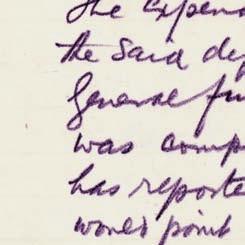 the Expen
the said de
General fu
was comp
has reporte
would point